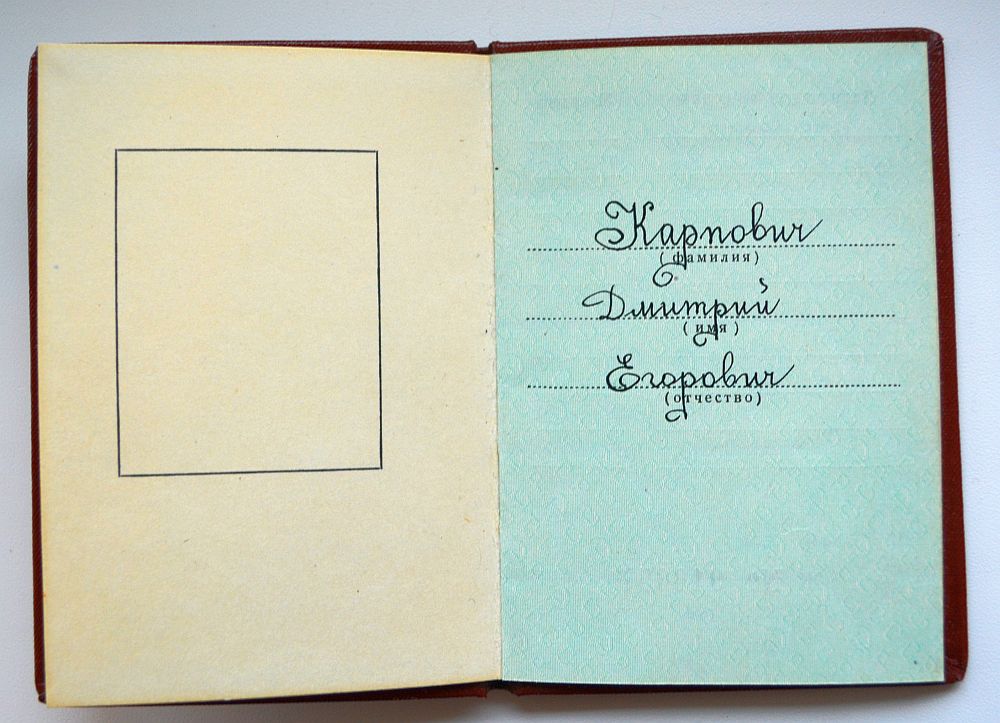 Карпович
(фамилия)
Дмитрий
(имя)
Егорович
(отчество)